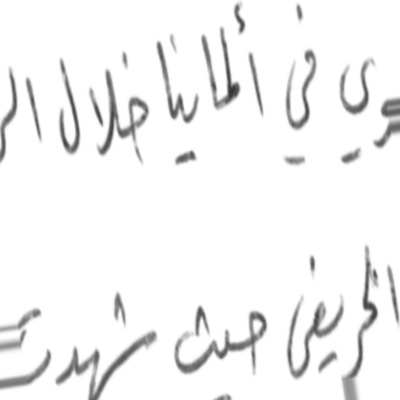 في ألمانيا خلال
الخريفي حيث شهدت